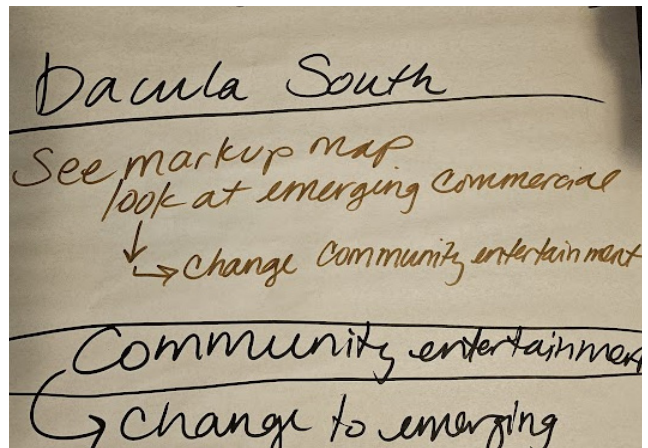 Dacula South
See markup map
look at emerging commercial
↓
↳ change community entertainment
Community entertainmen
↳ change to emerging